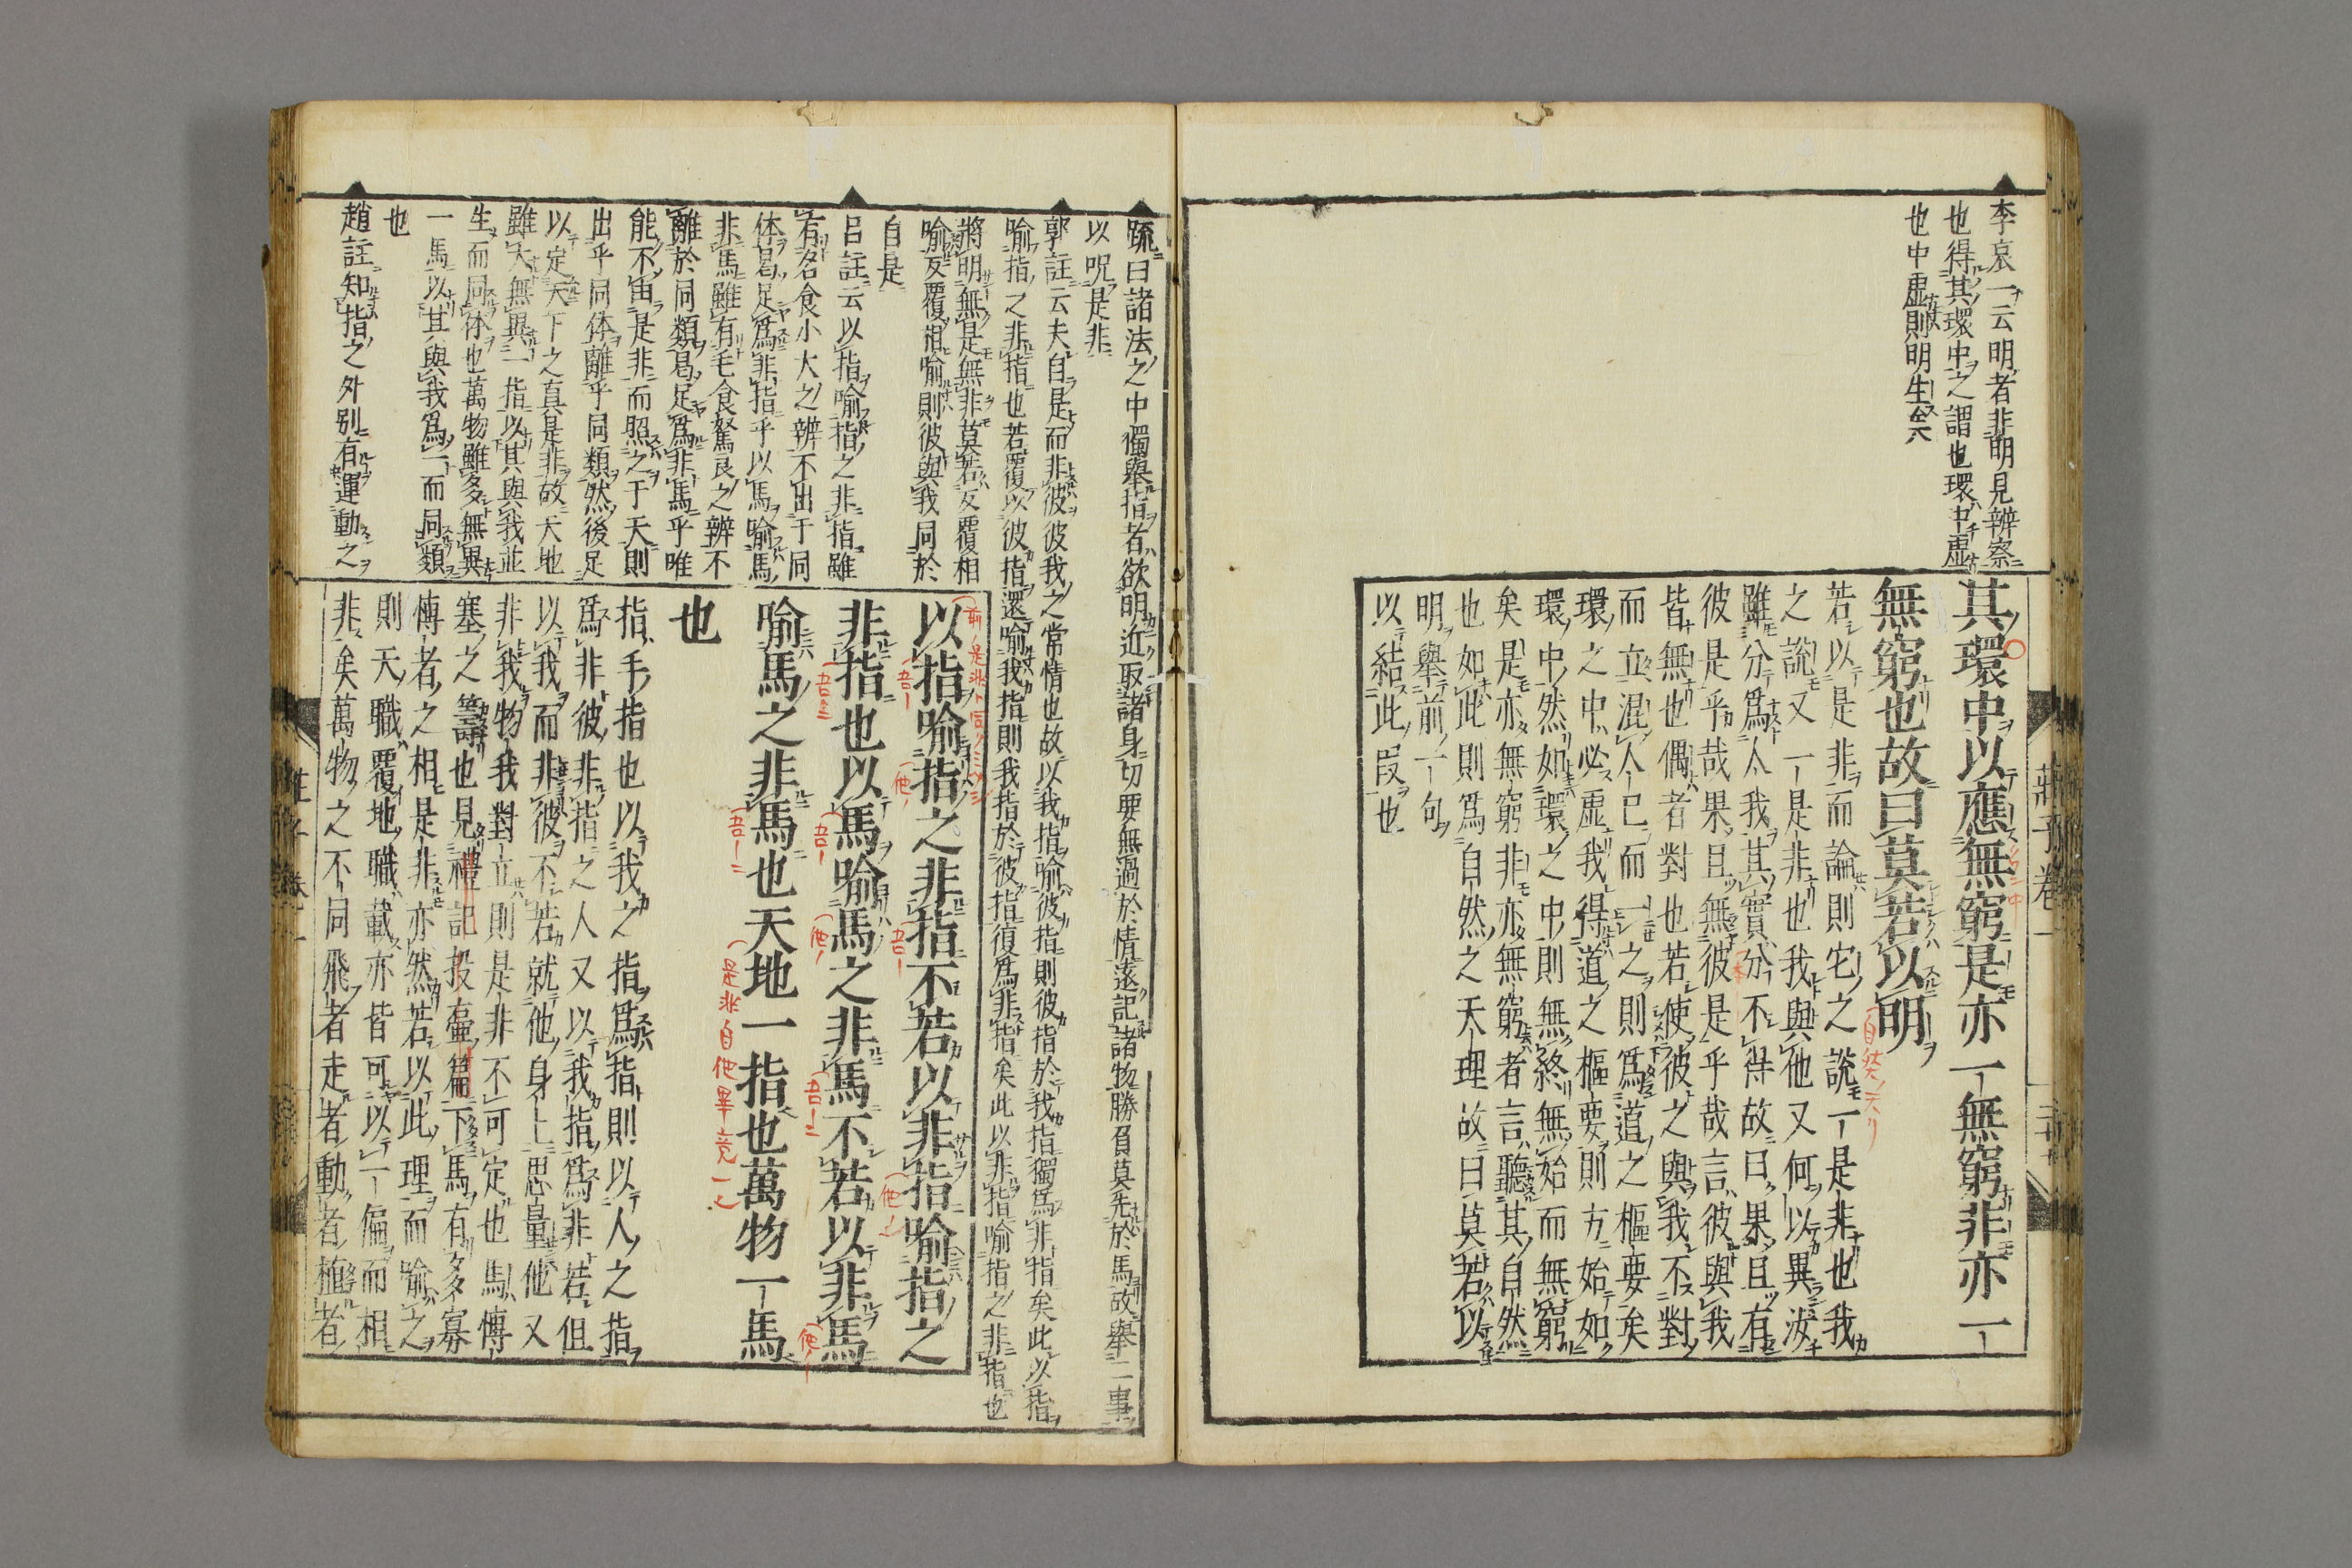 李哀一云明者非明見辨察
也得其環中之謂也環中虛
也中虛則明生矣
其環中以應無窮是亦一無窮非亦一
無窮也故曰莫若以明
若以是非而論則它之說一是非也我
之說又一是非也我與他又何以異汝
雖分為人我其實分不得故曰果且有
彼是乎哉果且無彼是乎哉言彼與我
皆無也偶者對也若使彼之與我不對
而立混人已而一之則為道之樞要矣
環之中必虛我得道之樞要則方始如
環中然如環之中則無終無始而無窮
矣是亦無窮非亦無窮者言聽其自然
也如此則為自然之天理故曰莫若以
明舉前一句
以結此段也
莊子卷一
疏曰諸法之中獨舉指者欲明近取諸身切要無過於情遠記諸物勝負莫先於馬故舉二事
以況是非
郭註云夫自是而非彼彼我之常情也故以我指喻彼指則彼指於我指獨為非指矣此以指
喻指之非指也若覆以彼指還喻我指則我指於彼指復為非指矣此以非指喻指之非指也
將明無是無非莫若反覆相
喻反覆相喻則彼與我同於
自是
呂註云以指喻指之非指雖
有名食小大之辨不出于同
体曷足為非指乎以馬喻馬
非馬雖有毛食駑良之辨不
離於同類曷足為非馬乎唯
能不由是非而照之于天則
出乎同体離乎同類然後足
以定天下之真是非故天地
雖大無異一指以其與我並
生而同体也萬物雖多無異
一馬以其與我為一而同類
也
趙註知指之外別有運動之
以指喻指之非指不若以非指喻指之
非指也以馬喻馬之非馬不若以非馬
喻馬之非馬也天地一指也萬物一馬
也
指手指也以我之指為指則以人之指
為非彼非指之人又以我指為非若但
以我而非彼不若就他身上思量他又
非我物我對立則是非不可定也馬博
塞之籌也見禮記投壺篇下馬有多寡
博者之相是非亦然若以此理而喻之
則天職覆地職載亦皆可以一偏而相
非矣萬物之不同飛者走者動者植者
是非自他畢竟一也